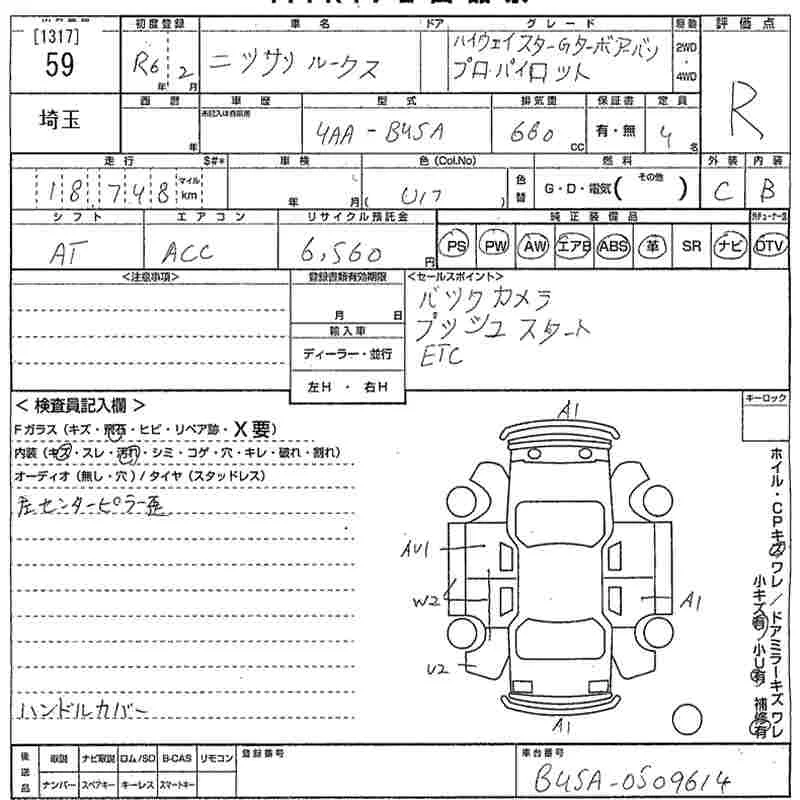 [1317]
59
埼玉
初度登録
R6 年 2 月
車名
ニッサン ルークス
ドア
グレード
ハイウェイスターGターボアーバン
プロ・パイロット
駆動
2WD
・
4WD
評価点
R
西暦
年
車歴
未記入は自家用
型式
4AA - B45A
排気量
660 cc
保証書
有・無
定員
4 名
走行
18,748
マイル
km
S#*
車検
年 月
色(Col.No)
( U17
色替
燃料
G・D・電気( その他 )
外装
C
内装
B
シフト
AT
エアコン
ACC
リサイクル預託金
6,560 円
純正装備品
PS PW AW エアB ABS 革 SR ナビ
DTV
<注意事項>
登録書類有効期限
月 日
輸入車
ディーラー・並行
左H ・ 右H
<セールスポイント>
バックカメラ
プッシュスタート
ETC
< 検査員記入欄 >
Fガラス (キズ・飛石・ヒビ・リペア跡・X要)
内装 (キズ・スレ・汚れ・シミ・コゲ・穴・キレ・破れ・割れ)
オーディオ (無し・穴) / タイヤ (スタッドレス)
左センターピラー歪
ハンドルカバー
A1
AU1
W2
U2
A1
A1
キーロック
ホイル・CPキズワレ/ドアミラーキズワレ
小キズ有/小U有 補修有
後送品
取説 ナビ取説 ロム/SD B-CAS リモコン
ナンバー スペアキー キーレス スマートキー
登録番号
車台番号
B45A-0509614